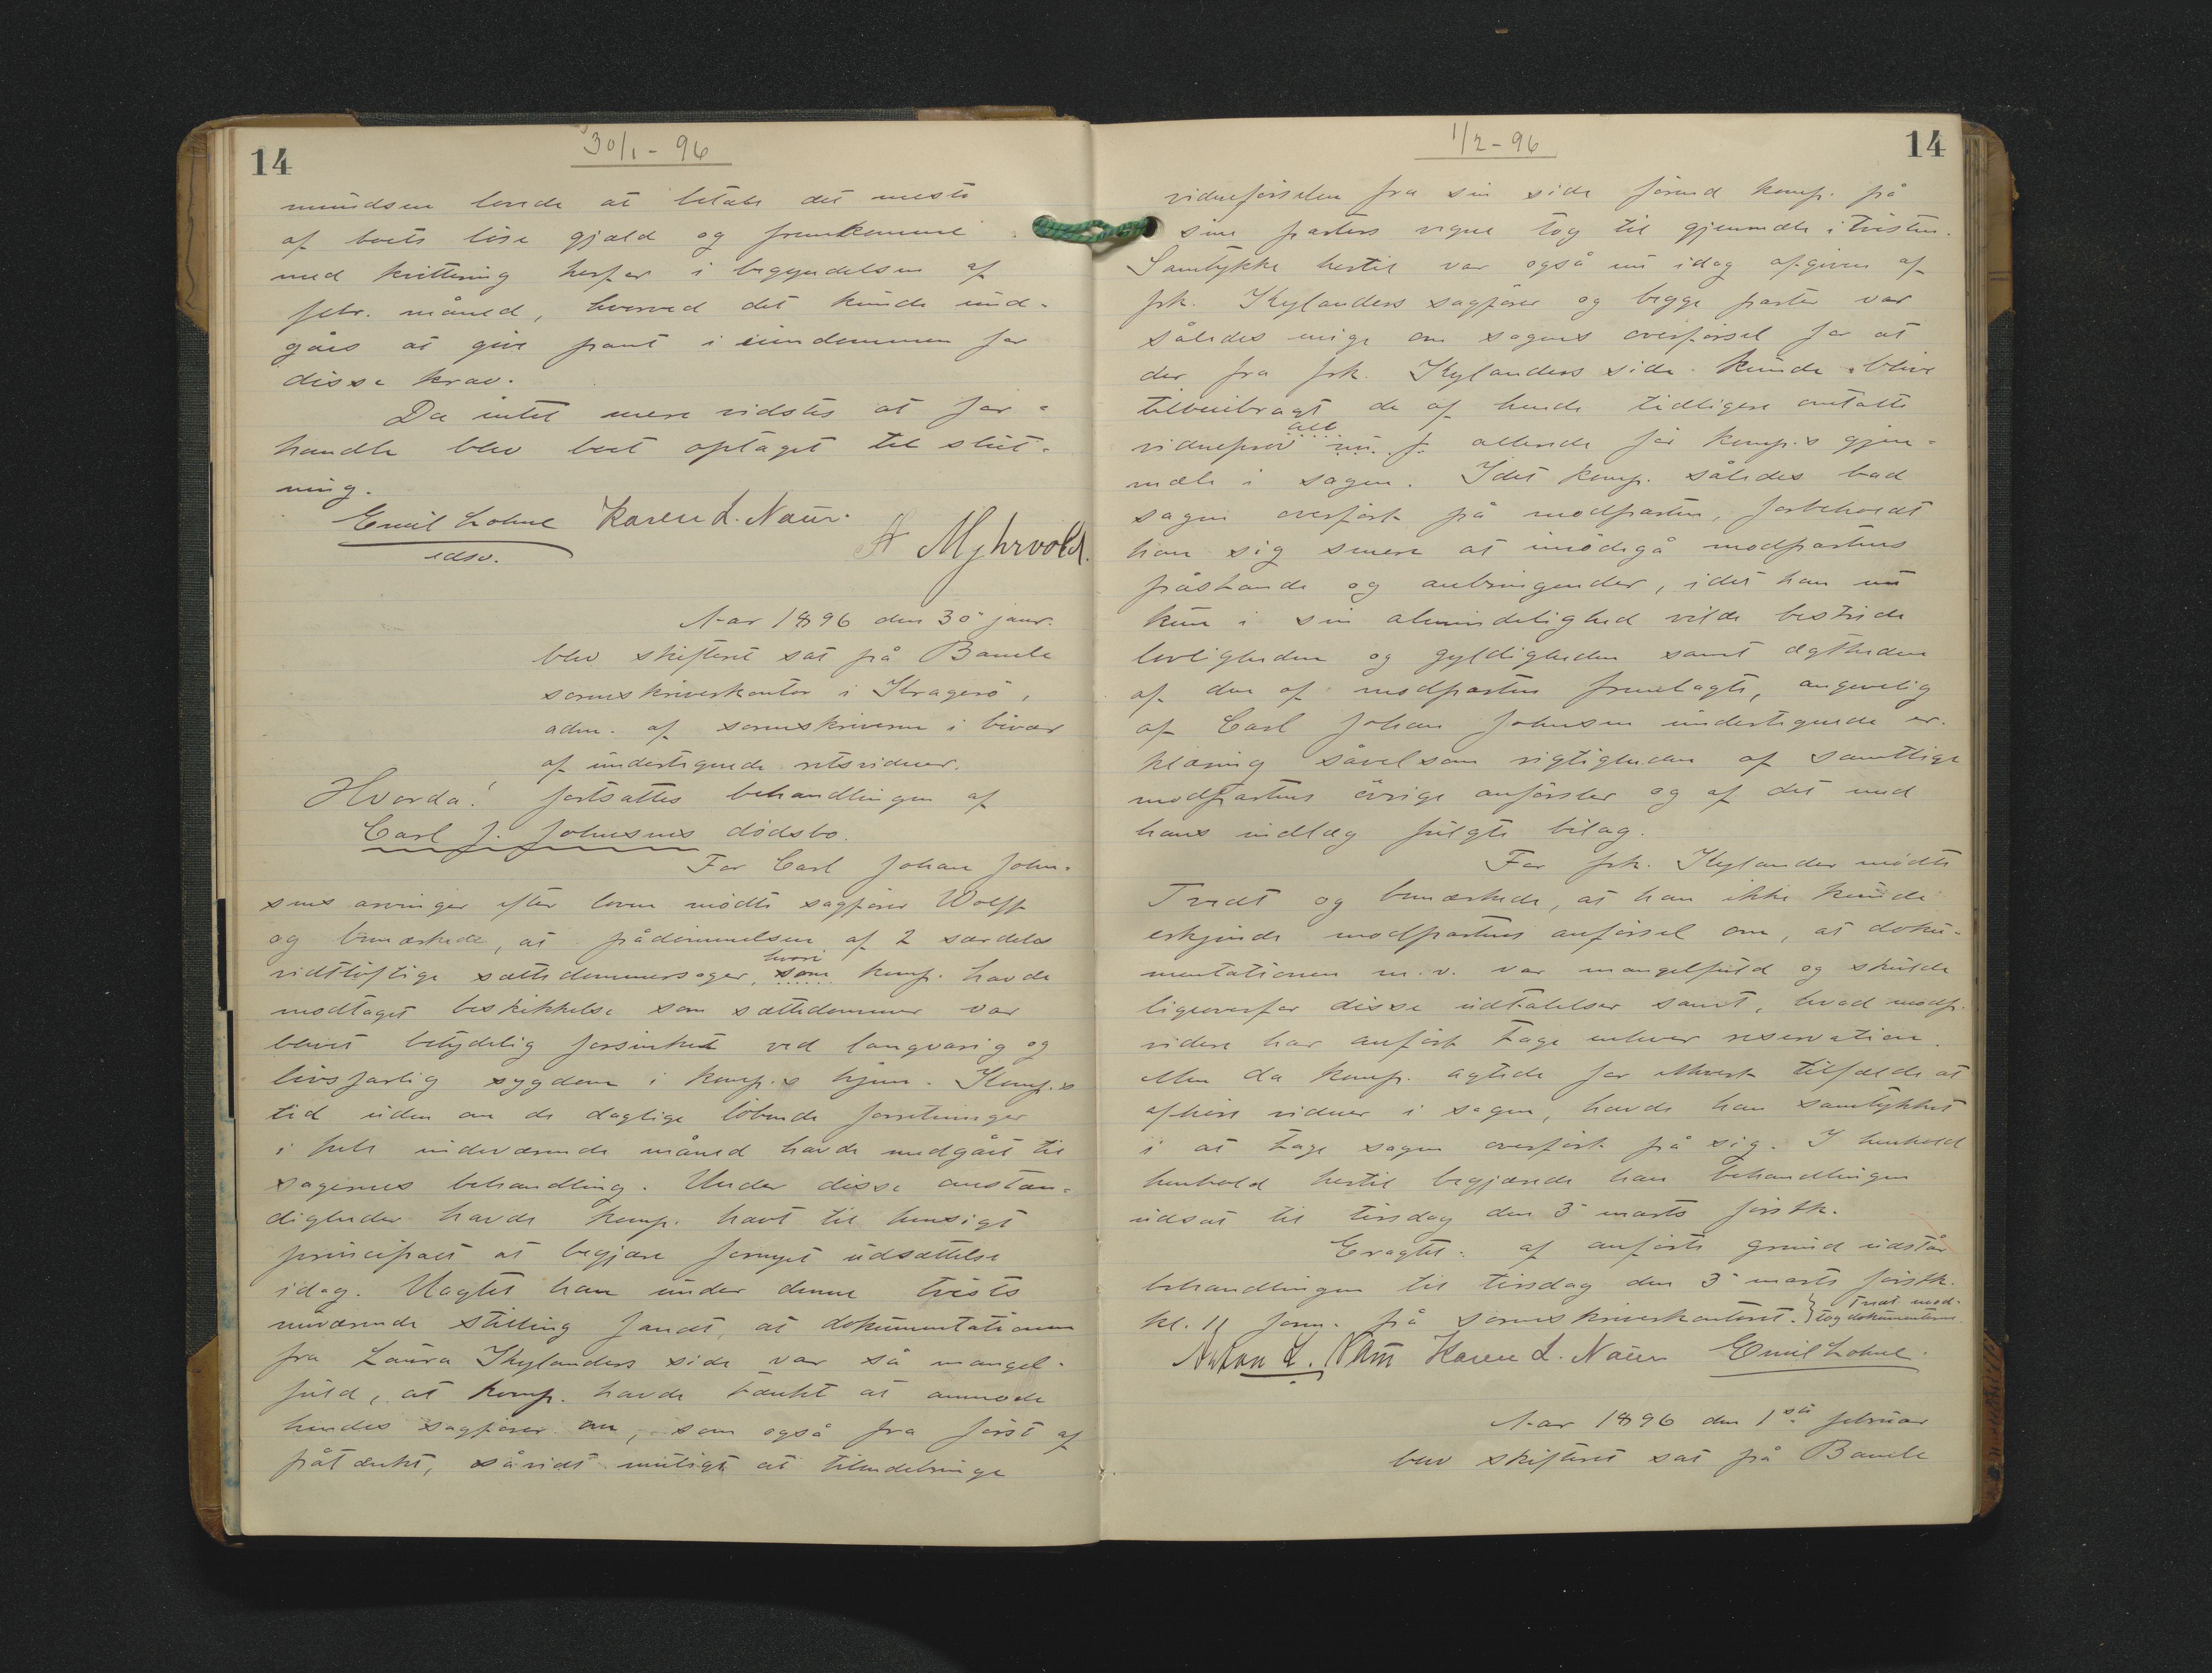 14
30/1 - 96
mundsen lovede at betale det meste
af boets løse gjæld og fremkomme
med kvittering herfor i begyndelsen af
febr. måned, hvorved det kunde und-
gåes at give pant i eiendommen for
disse krav.
Da intet mere vidstes at for-
handle blev boet optaget til slut-
ning.
Emil Lohne Karen L. Naur.
edsv.
A Myhrvold.
Aar 1896 den 30 janr.
blev skifteret sat på Bamble
sorenskriverkontor i Kragerø,
adm. af sorenskriveren i bivær
af undertegnede retsvidner.
Hvorda! fortsattes behandlingen af
Carl J. Johnsens dødsbo.
For Carl Johan John-
sens arvinger efter loven mødte sagfører Wolff
og bemærkede, at pådømmelsen af 2 særdeles
hvori
vidtløftige sættedommersager, som komp. havde
modtaget beskikkelse som sættedommer var
blevet betydelig forsinket ved langvarig og
livsfarlig sygdom i komp.s hjem. Komp.s
tid uden om de daglige løbende forretninger
i hele indeværende måned havde medgået til
sagernes behandling. Under disse omstæn-
digheder havde komp. havt til hensigt
principalt at begjære fornyet udsættelse
idag. Uagtet han under denne tvists
nuværende stilling fandt, at dokumentationen
fra Laura Kylanders side var så mangel-
fuld, at komp. havde tænkt at anmode
hendes sagfører om, som også fra først af
påtænkt, såvidt muligt at tilendebringe
1/2 - 96
14
vidneførselen fra sin side førend komp. på
sine parters vegne tog til gjenmæle i tvisten.
Samtykke hertil var også nu idag afgiven af
frk. Kylanders sagfører og begge parter var
således enige om sagens overførsel for at
der fra frk. Kylanders side kunde blive
tilveiebragt de af hende tidligere omtalte
alt
vidneprov nu f. allerede før komp.s gjen-
mæle i sagen. Idet komp. således bad
sagen overført på modparten, forbeholdt
han sig senere at imødegå modpartens
påstande og anbringender, idet han nu
kun i sin almindelighed vilde bestride
lovligheden og gyldigheden samt ægtheden
af den af modparten fremlagte, angivelig
af Carl Johan Johnsen undertegnede er-
klæring såvelsom rigtigheden af samtlige
modpartens øvrige anførsler og af det med
hans indlæg fulgte bilag.
For frk. Kylander mødte
Tvedt og bemærkede, at han ikke kunde
erkjende modpartens anførsel om, at doku-
mentationen m.v. var mangelfuld og skulde
ligeoverfor disse udtalelser samt, hvad modp.
videre har anført tage enhver reservation.
Men da komp. agtede for ethvert tilfælde at
afhøre vidner i sagen, havde han samtykket
i at tage sagen overført på sig. I henhold
henhold hertil begjærede han behandlingen
udsat til tirsdag den 3 marts førstk.
Eragtet: af anførte grund udstår
behandlingen til tirsdag den 3 marts førstk.
kl. 11 form. på sorenskriverkontoret. } Tvedt mod-
tog dokumenterne.
Anton L. Naur Karen L. Naur Emil Lohne.
Aar 1896 den 1ste februar
blev skifteret sat på Bamble